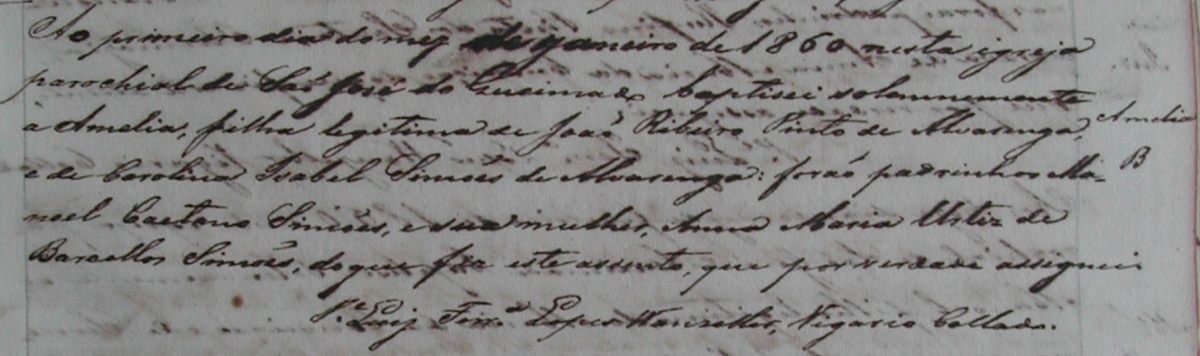 Ao primeiro dia do mez de janeiro de 1860 nesta igreja
parochial de São José do Queimado baptisei solemnemente
a Amelia, filha legitima de João Ribeiro Pinto de Alvarenga,
Amelia
e de Carolina Isabel Simões de Alvarenga: forão padrinhos Ma-
B
noel Caetano Simões, e sua mulher, Anna Maria Ortiz de
Barcellos Simões, do que fiz este assento, que por verdade assignei.
Pe. Luiz Lopes Vigario Collado.